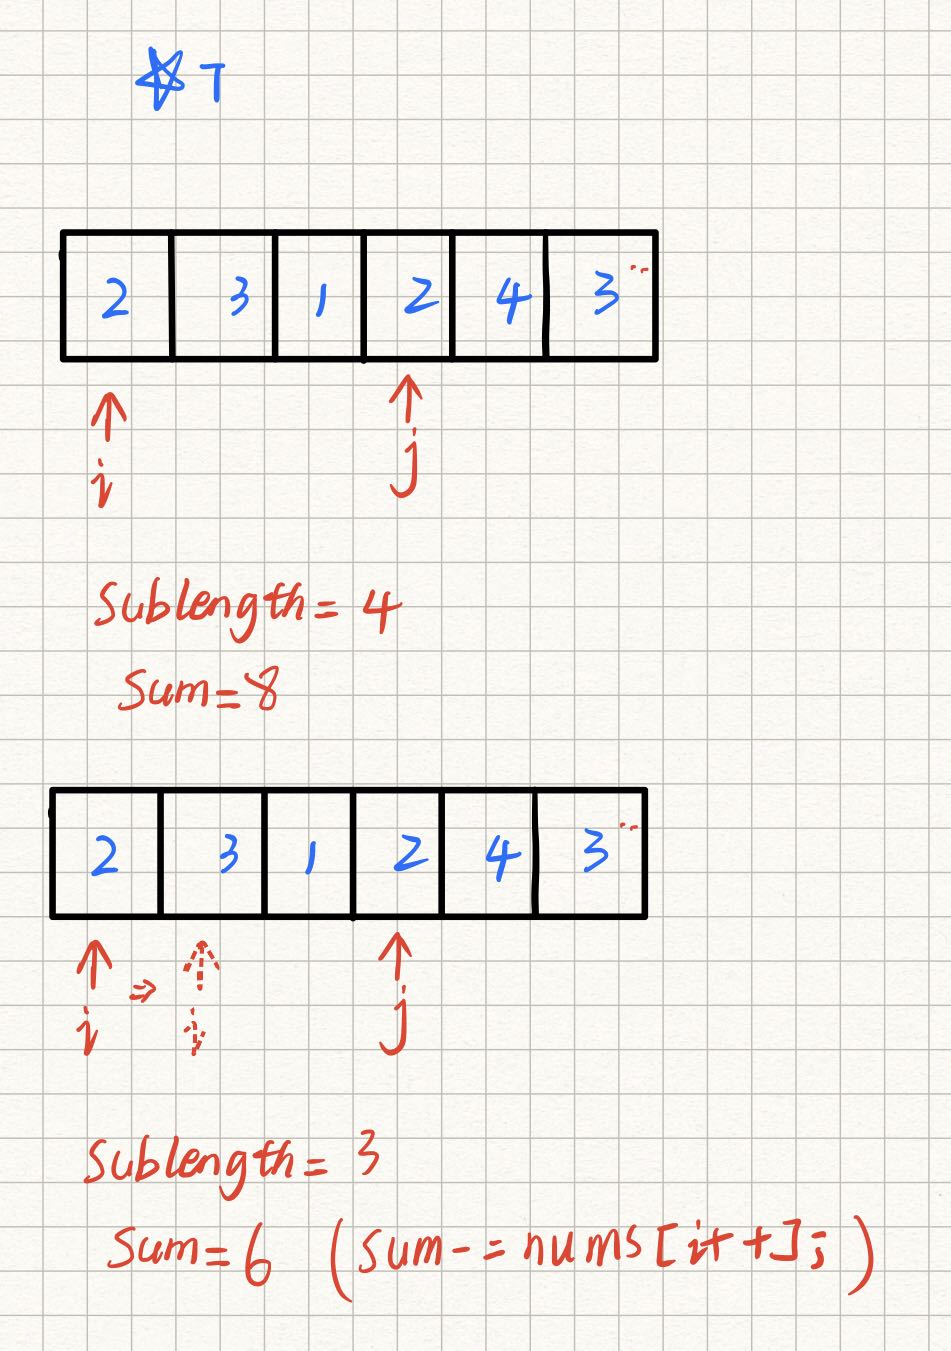 ☆ T
2 3 1 2 4 3
i j
Sublength = 4
Sum = 8
2 3 1 2 4 3
i ⇒ i j
Sublength = 3
Sum = 6 (sum -= nums[i++];)